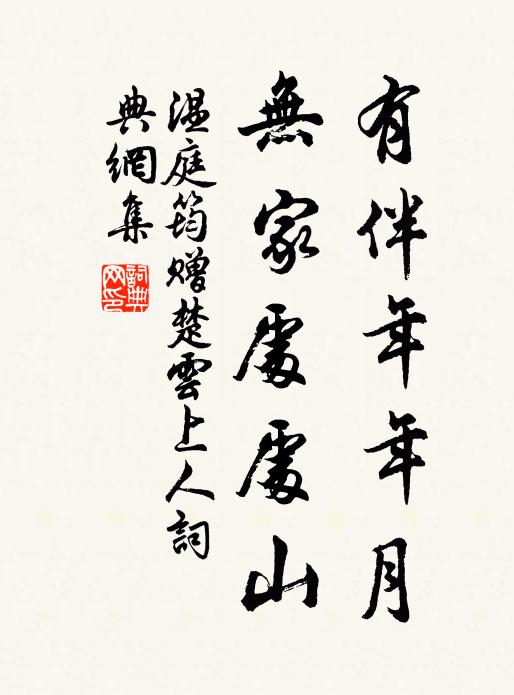 有伴年年月
無家處處山
温庭筠贈楚雲上人詞
典網集
詞典
网印